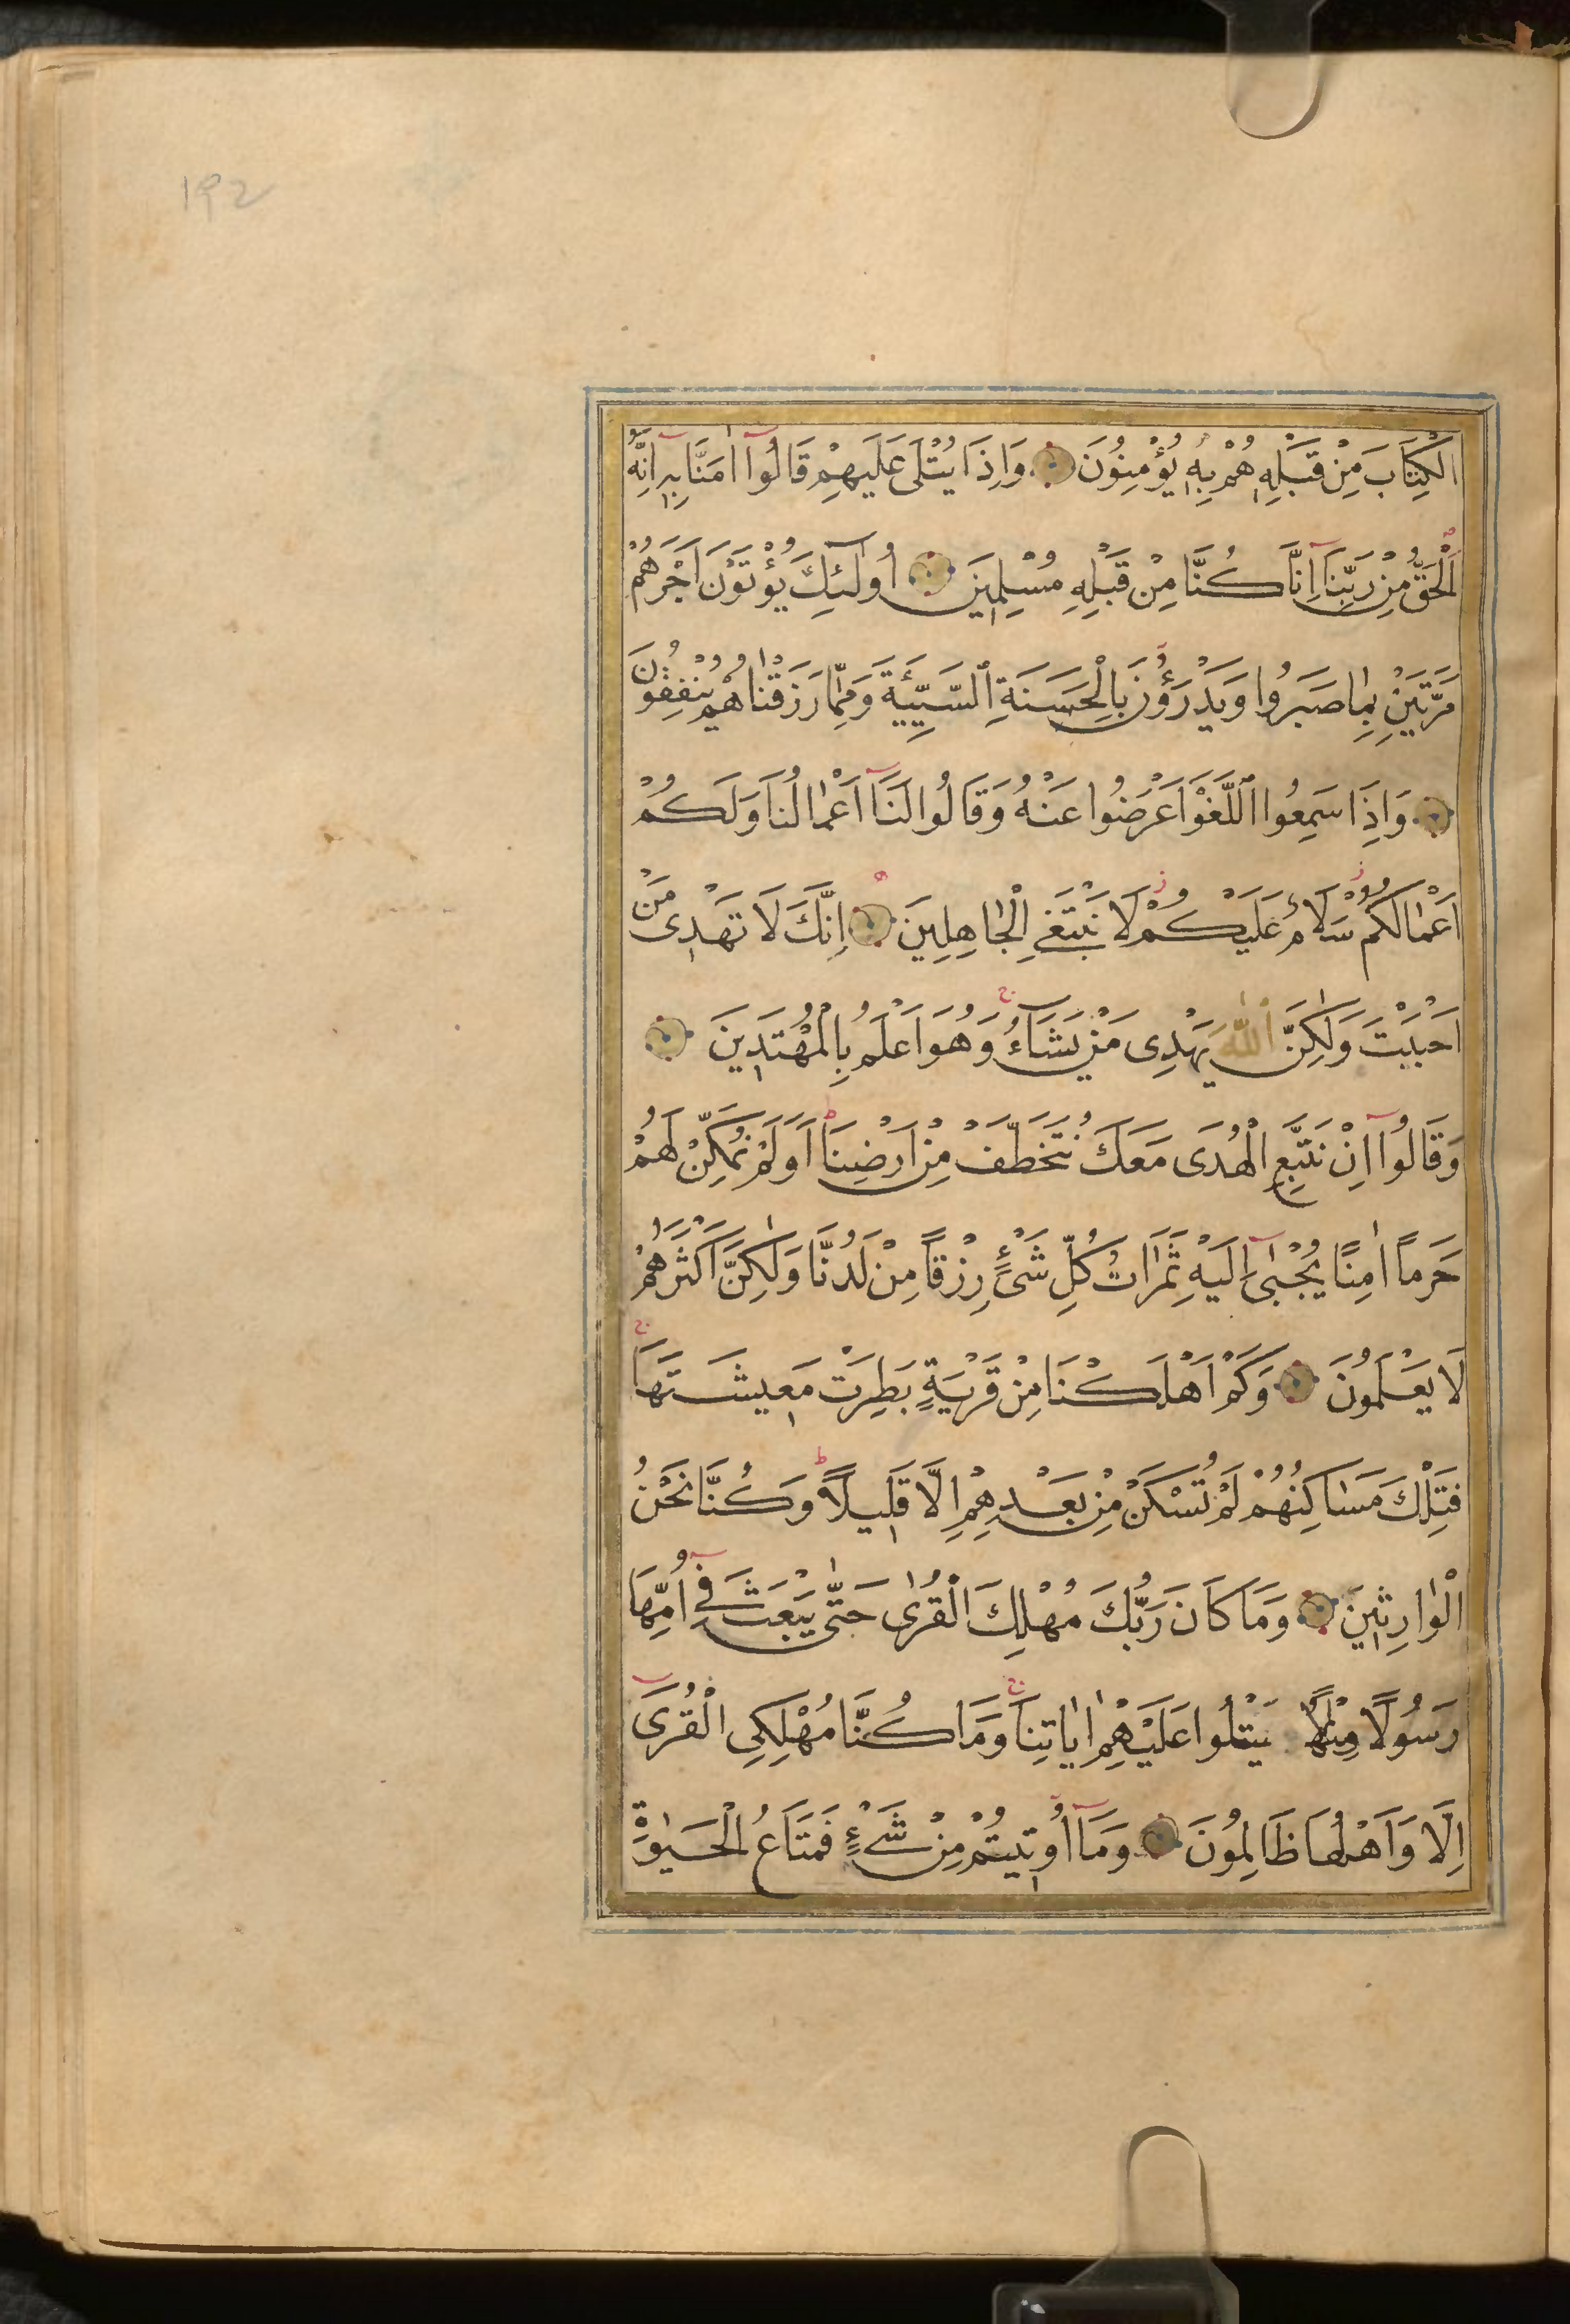 192
الْكِتَابَ مِنْ قَبْلِهِ هُمْ بِهِ يُؤْمِنُونَ وَاِذَا يُتْلٰى عَلَيْهِمْ قَالُوٓا اٰمَنَّا بِهٓ اِنَّهُ
الْحَقُّ مِنْ رَبِّنَٓا اِنَّا كُنَّا مِنْ قَبْلِهِ مُسْلِمِينَ اُولٰٓئِكَ يُؤْتَوْنَ اَجْرَهُمْ
مَرَّتَيْنِ بِمَا صَبَرُوا وَيَدْرَؤُنَ بِالْحَسَنَةِ السَّيِّئَةَ وَمِمَّا رَزَقْنَاهُمْ يُنْفِقُونَ
وَاِذَا سَمِعُوا اللَّغْوَ اَعْرَضُوا عَنْهُ وَقَالُوا لَنَٓا اَعْمَالُنَا وَلَكُمْ
اَعْمَالُكُمْ سَلَامٌ عَلَيْكُمْ لَا نَبْتَغِي الْجَاهِلِينَ اِنَّكَ لَا تَهْدِى مَنْ
اَحْبَبْتَ وَلٰكِنَّ اللّٰهَ يَهْدِى مَنْ يَشَٓاءُ وَهُوَ اَعْلَمُ بِالْمُهْتَدِينَ
وَقَالُوٓا اِنْ نَتَّبِعِ الْهُدٰى مَعَكَ نُتَخَطَّفْ مِنْ اَرْضِنَا اَوَلَمْ نُمَكِّنْ لَهُمْ
حَرَمًا اٰمِنًا يُجْبٰٓى اِلَيْهِ ثَمَرَاتُ كُلِّ شَىْءٍ رِزْقًا مِنْ لَدُنَّا وَلٰكِنَّ اَكْثَرَهُمْ
لَا يَعْلَمُونَ وَكَمْ اَهْلَكْنَا مِنْ قَرْيَةٍ بَطِرَتْ مَعِيشَتَهَا
فَتِلْكَ مَسَاكِنُهُمْ لَمْ تُسْكَنْ مِنْ بَعْدِهِمْ اِلَّا قَلِيلًا وَكُنَّا نَحْنُ
الْوَارِثِينَ وَمَا كَانَ رَبُّكَ مُهْلِكَ الْقُرٰى حَتّٰى يَبْعَثَ فِٓى اُمِّهَا
رَسُولًا مِنْهُمْ يَتْلُوا عَلَيْهِمْ اٰيَاتِنَا وَمَا كُنَّا مُهْلِكِى الْقُرٰٓى
اِلَّا وَاَهْلُهَا ظَالِمُونَ وَمَٓا اُوتِيتُمْ مِنْ شَىْءٍ فَمَتَاعُ الْحَيٰوةِ